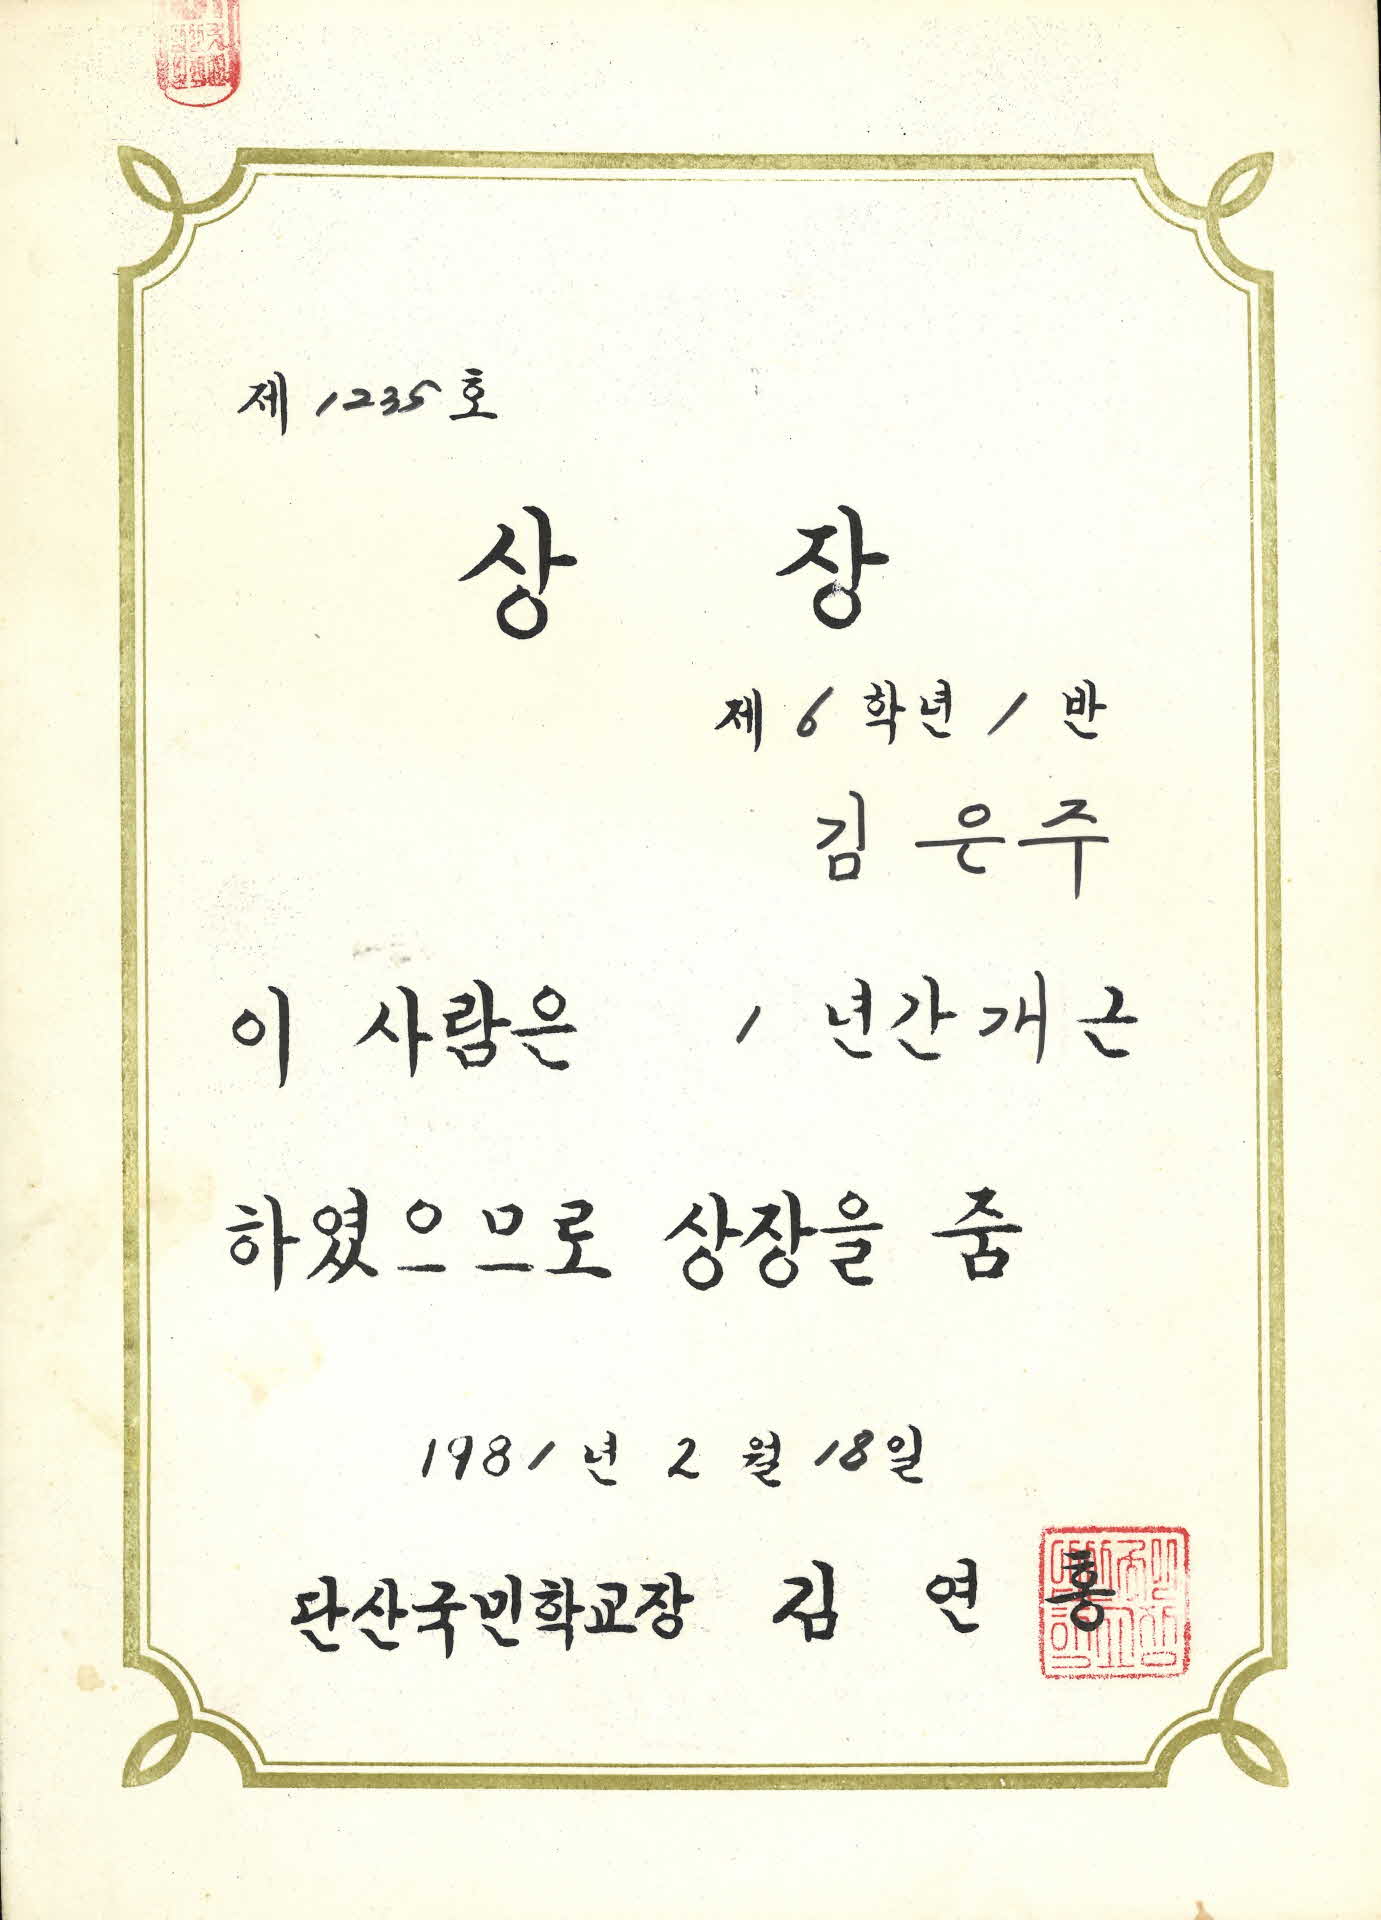 제 1235 호
상 장
제 6 학년 1 반
김 은주
이 사람은 1 년간개근
하였으므로 상장을 줌
1981년 2 월 18일
단산국민학교장 김 연 홍